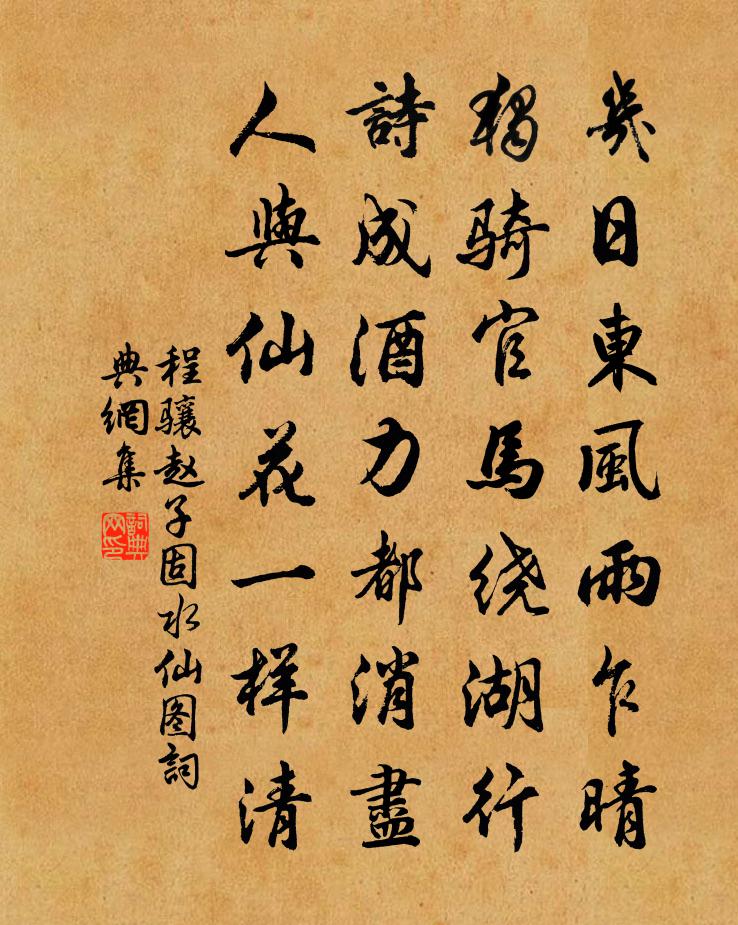 幾日東風雨乍晴
獨骑官馬绕湖行
詩成酒力都消盡
人與仙花一样清
程骧赵子固水仙图詞
典網集
詞典
网印